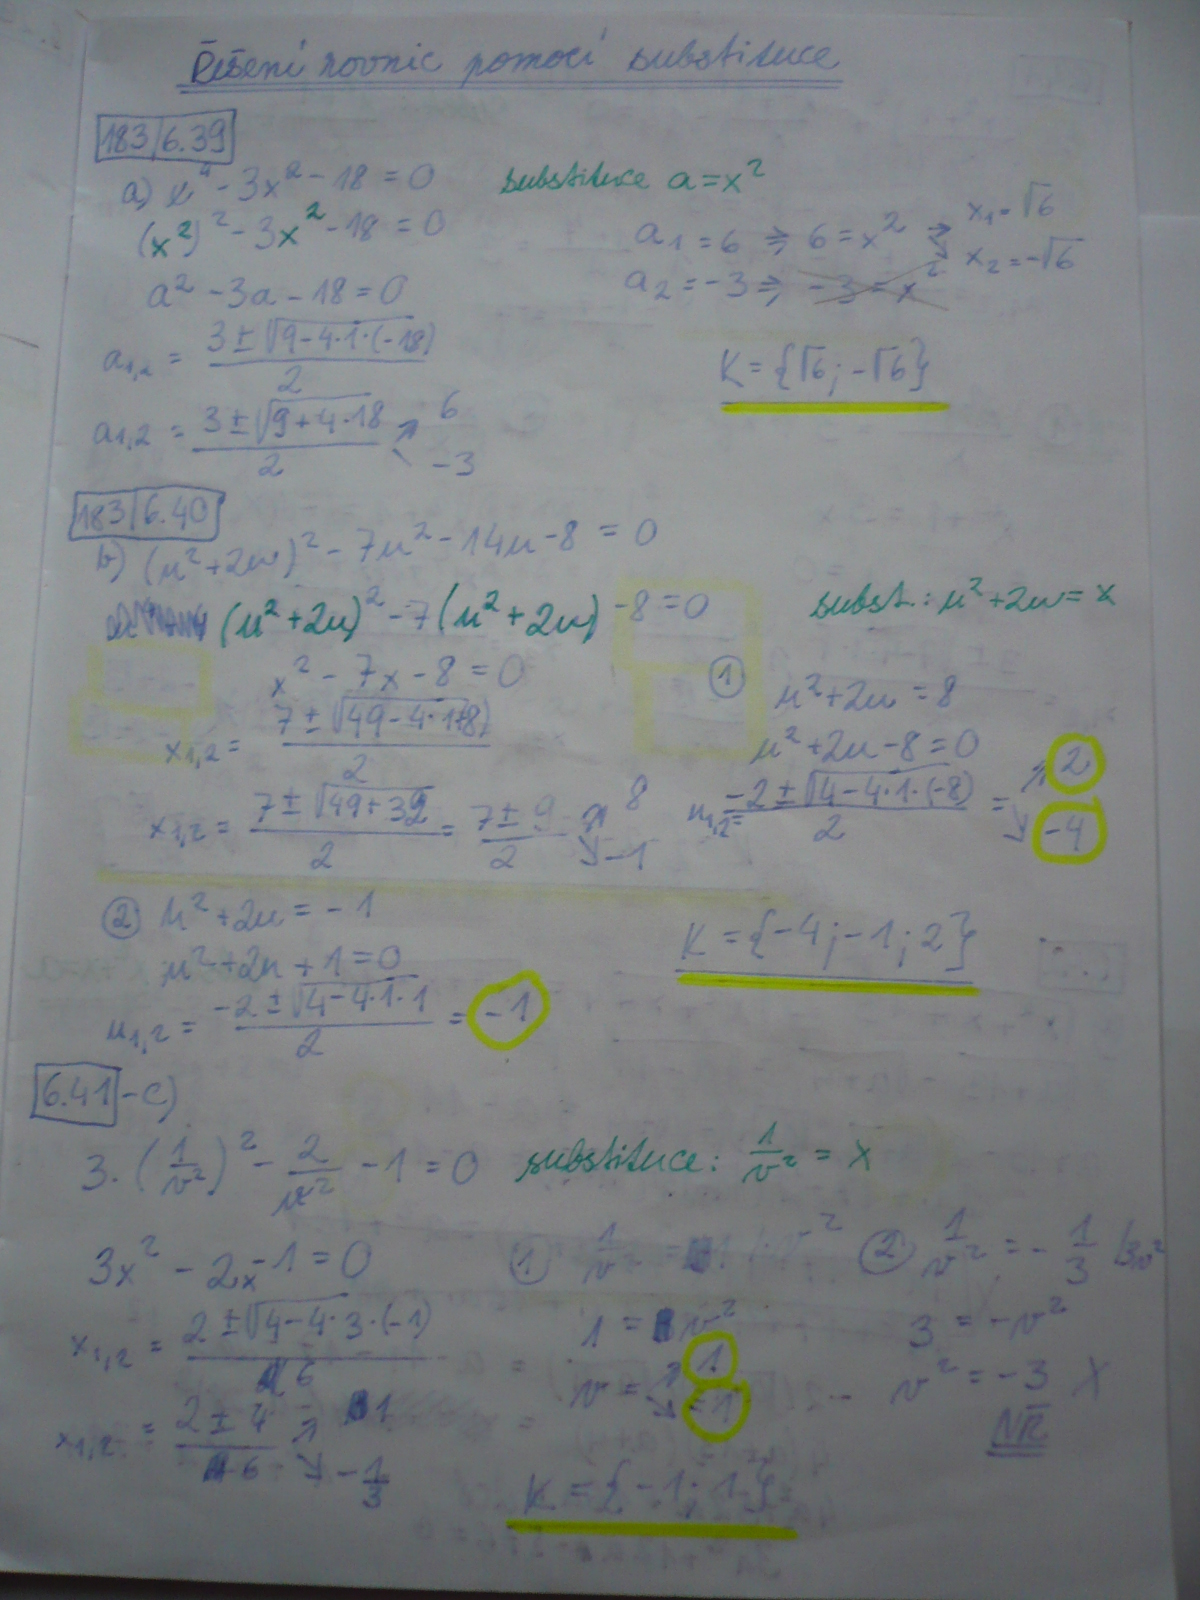 Řešení rovnic pomocí substituce
183/6.39
a) x⁴ - 3x² - 18 = 0 substituce a = x²
(x²)² - 3x² - 18 = 0
a² - 3a - 18 = 0
a₁,₂ = (3 ± √(9 - 4·1·(-18))) / 2
a₁,₂ = (3 ± √(9 + 4·18)) / 2 ↗ 6 ↘ -3
a₁ = 6 ⇒ 6 = x² → x₁ = √6
↘ x₂ = -√6
a₂ = -3 ⇒ -3 = x²
K = {√6; -√6}
183/6.40
b) (u² + 2u)² - 7u² - 14u - 8 = 0
(u² + 2u)² - 7(u² + 2u) - 8 = 0 subst.: u² + 2u = x
x² - 7x - 8 = 0
x₁,₂ = (7 ± √(49 - 4·1·(-8))) / 2
x₁,₂ = (7 ± √(49 + 32)) / 2 = (7 ± 9) / 2 ↗ 8 ↘ -1
① u² + 2u = 8
u² + 2u - 8 = 0
u₁,₂ = (-2 ± √(4 - 4·1·(-8))) / 2 = ↗ 2 ↘ -4
② u² + 2u = -1
u² + 2u + 1 = 0
u₁,₂ = (-2 ± √(4 - 4·1·1)) / 2 = -1
K = {-4; -1; 2}
6.41 - c)
3·(1/v²)² - 2/v² - 1 = 0 substituce: 1/v² = x
3x² - 2x - 1 = 0
x₁,₂ = (2 ± √(4 - 4·3·(-1))) / 6
x₁,₂ = (2 ± 4) / 6 ↗ 1 ↘ -1/3
① 1/v² = 1 /·v²
1 = v²
v = ↗ 1 ↘ -1
② 1/v² = -1/3 /3v²
3 = -v²
v² = -3 X
NŘ
K = {-1; 1}